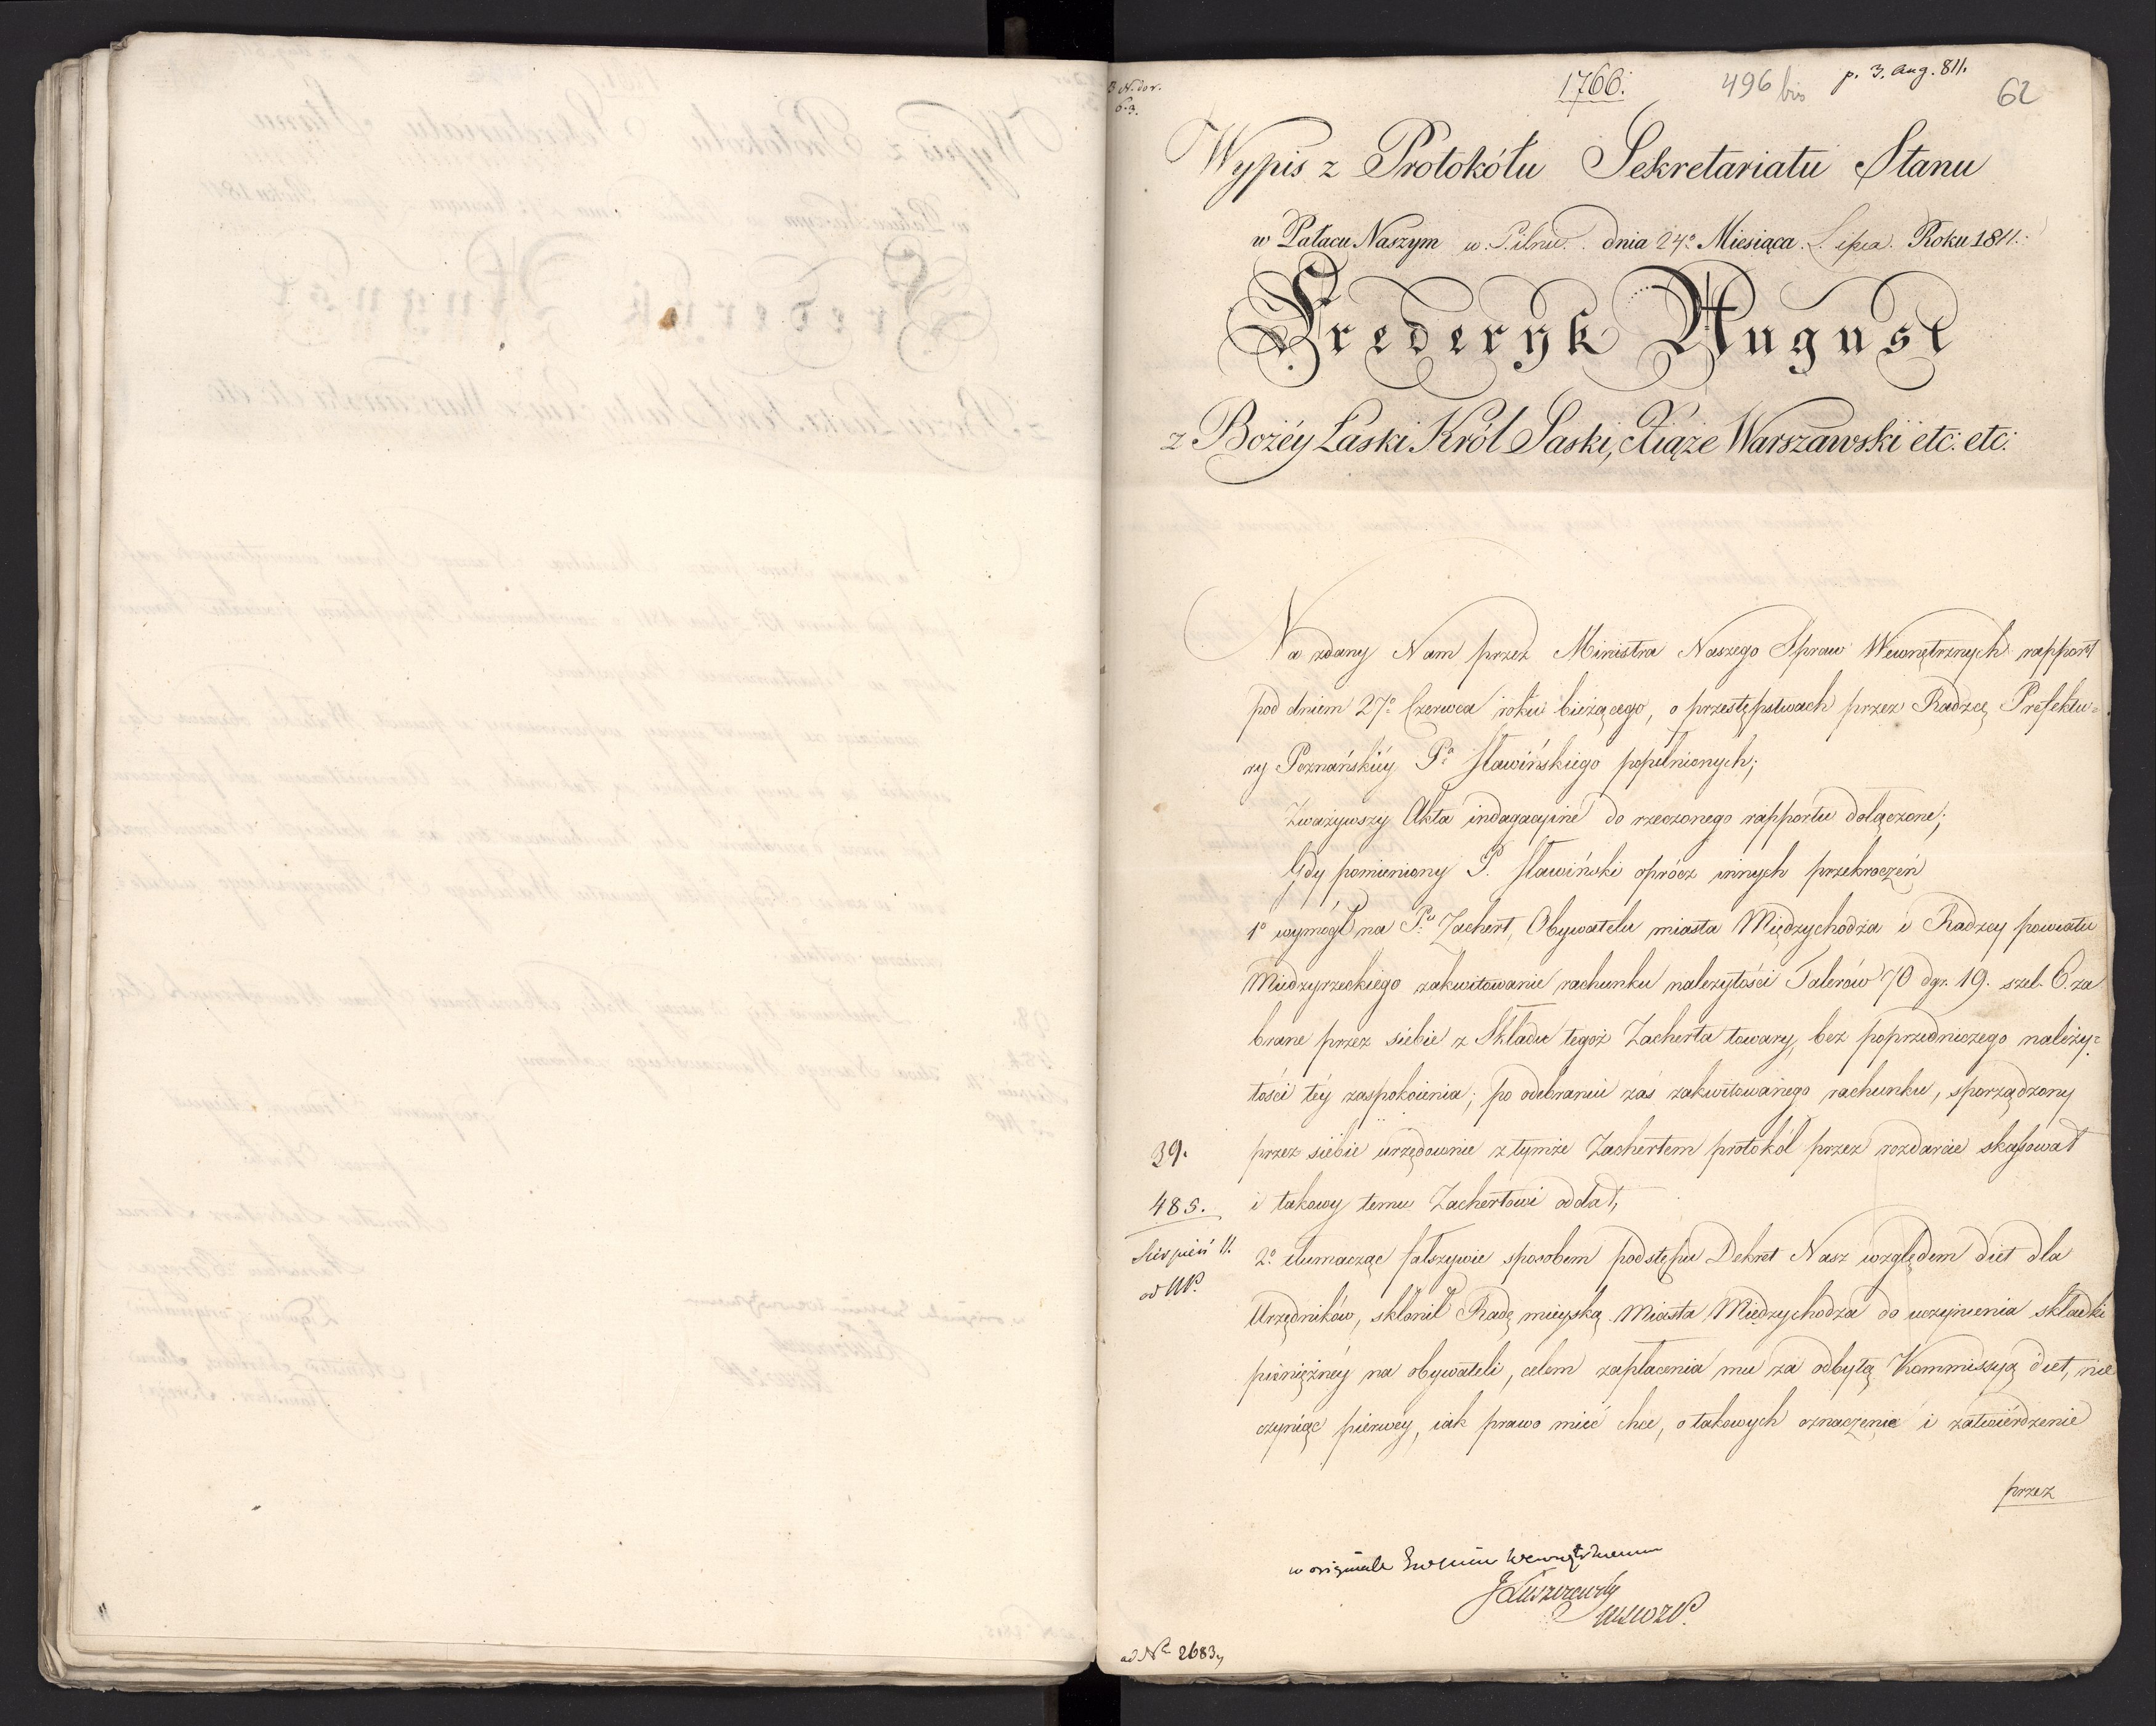 3 N. dor.
6.3.
1766.
496 bis
p. 3. Aug. 811.
62
Wypis z Protokółu Sekretariatu Stanu
w Pałacu Naszym w. Pilnic. dnia 24º Miesiąca. Lipca. Roku 1811.
Frederyk August
z Bożéy Łaski Król Saski, Xiąże Warszawski etc: etc:
Na zdany Nam przez Ministra Naszego Spraw Wewnętrznych rapport
pod dniem 27º Czerwca roku bieżącego, o przestępstwach przez Radzcę Prefektu=
ry Poznańskiéy Pª Sławińskiego popełnionych;
Zważywszy Akta indagacyine do rzeczonego rapportu dołączone;
Gdy pomieniony P. Sławiński oprócz innych przekroczeń
1º wymógł na Pu Zachert, Obywatelu miasta Międzychodza i Radzcy powiatu
Miedzyrzeckiego zakwitowanie rachunku należytości Talerów 70 dgr. 19. szel. 6. za
brane przez siebie z Składu tegoż Zacherta towary, bez poprzedniczego należy=
tości téy zaspokoienia; po odebraniu zaś zakwitowanego rachunku, sporządzony
przez siebie urzędownie z tymże Zachertem protokół przez rozdarcie skassował
i takowy temu Zachertowi oddał,
2º tłumacząc fałszywie sposobem podstępu Dekret Nasz względem diet dla
Urzędników, skłonił Radę mieyską Miasta Międzychodza do uczynienia składki
pieniężnéy na obywateli, celem zapłacenia mu za odbytą Kommissyą diet, nie
czyniąc pierwéy, iak prawo mieć chce, o takowych oznaczenie i zatwierdzenie
przez
39.
485.
Sierpień 11.
od MP.
w originale Swoim Wewnętrznem
J Łuszczewski
ad Nº 2683,